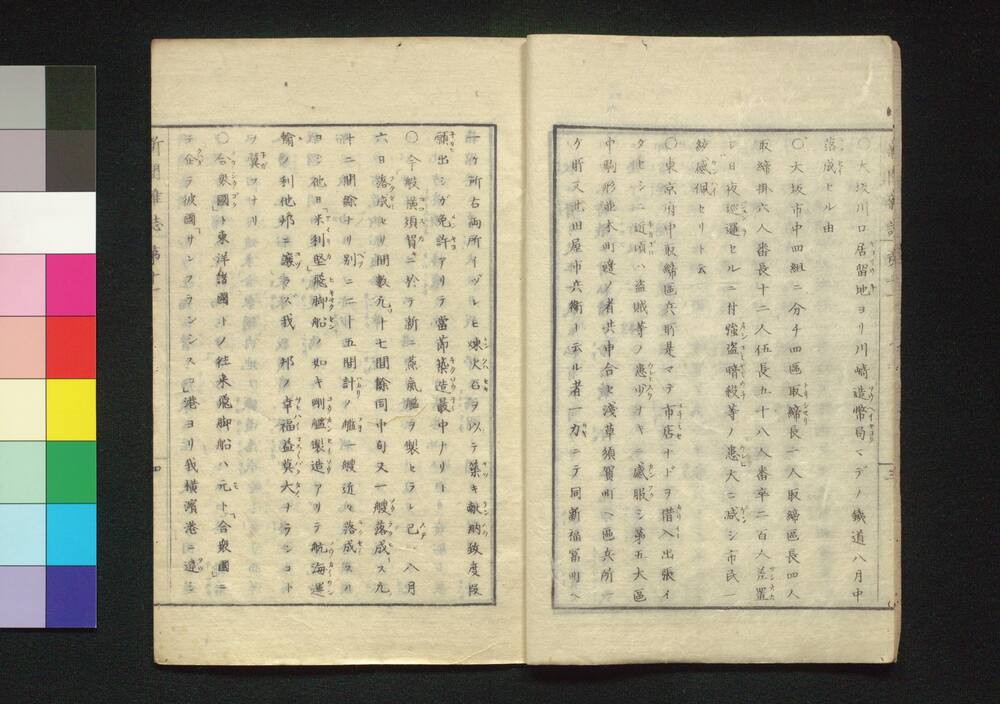 〇大坂川口居留地ヨリ川崎造幣局マデノ鐵道八月中
落成セル由
〇大坂市中四組ニ分チ四區取締長一人取締區長四人
取締掛六人番長十二人伍長五十八人番卒二百人差置
日夜巡邏セルニ付強盗暗殺等ノ患大ニ减シ市民一
統感佩セリト云
〇東京府中取締區兵所是マテ市店ナドヲ借入出張イ
タセシニ近頃ハ盗賊等ノ患少ナキヲ感服シ第五大區
中駒形並木町邊ノ者共申合セ淺草須賀町ヘ區兵所一
ケ所又池田屋市兵衛ト云ル者一力ニテ同新福富町ヘ
一ケ所右両所イヅレモ煉火石ヲ以テ築キ献納致度段
願出シガ免許アリテ當節築造最中ナリト
〇今般横須賀ニ於テ新ニ蒸氣艦ヲ製セラレ已ニ八月
六日落成セリ間數九十七間餘同中旬又一艘落成ス九
十二間餘ナリ別ニ二十五間計ノ艦一艘近々落成スル
由シ他日米利堅飛脚船ノ如キ剛艦製造アリテ航海運
輸ノ利他邦ニ讓ラス我邦ノ幸福益莫大ナランコト
ヲ冀フナリ
〇合衆國ト東洋諸國トノ往来飛脚船ハ元ト合衆國ニ
テ企テ彼國サンフランシスコ港ヨリ我横濱港ニ達シ
新聞雜誌第十一
四
三